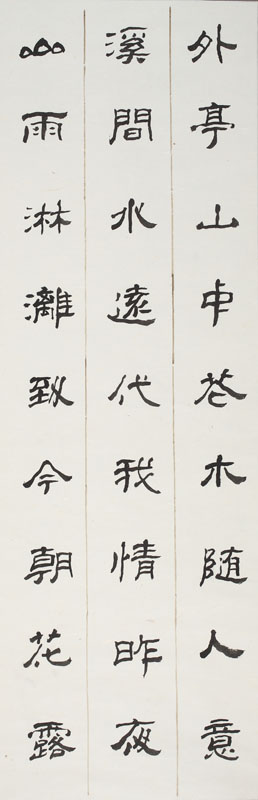 外亭山中花木随人意
溪間水遠代我情昨夜
山雨淋漓致今朝花露